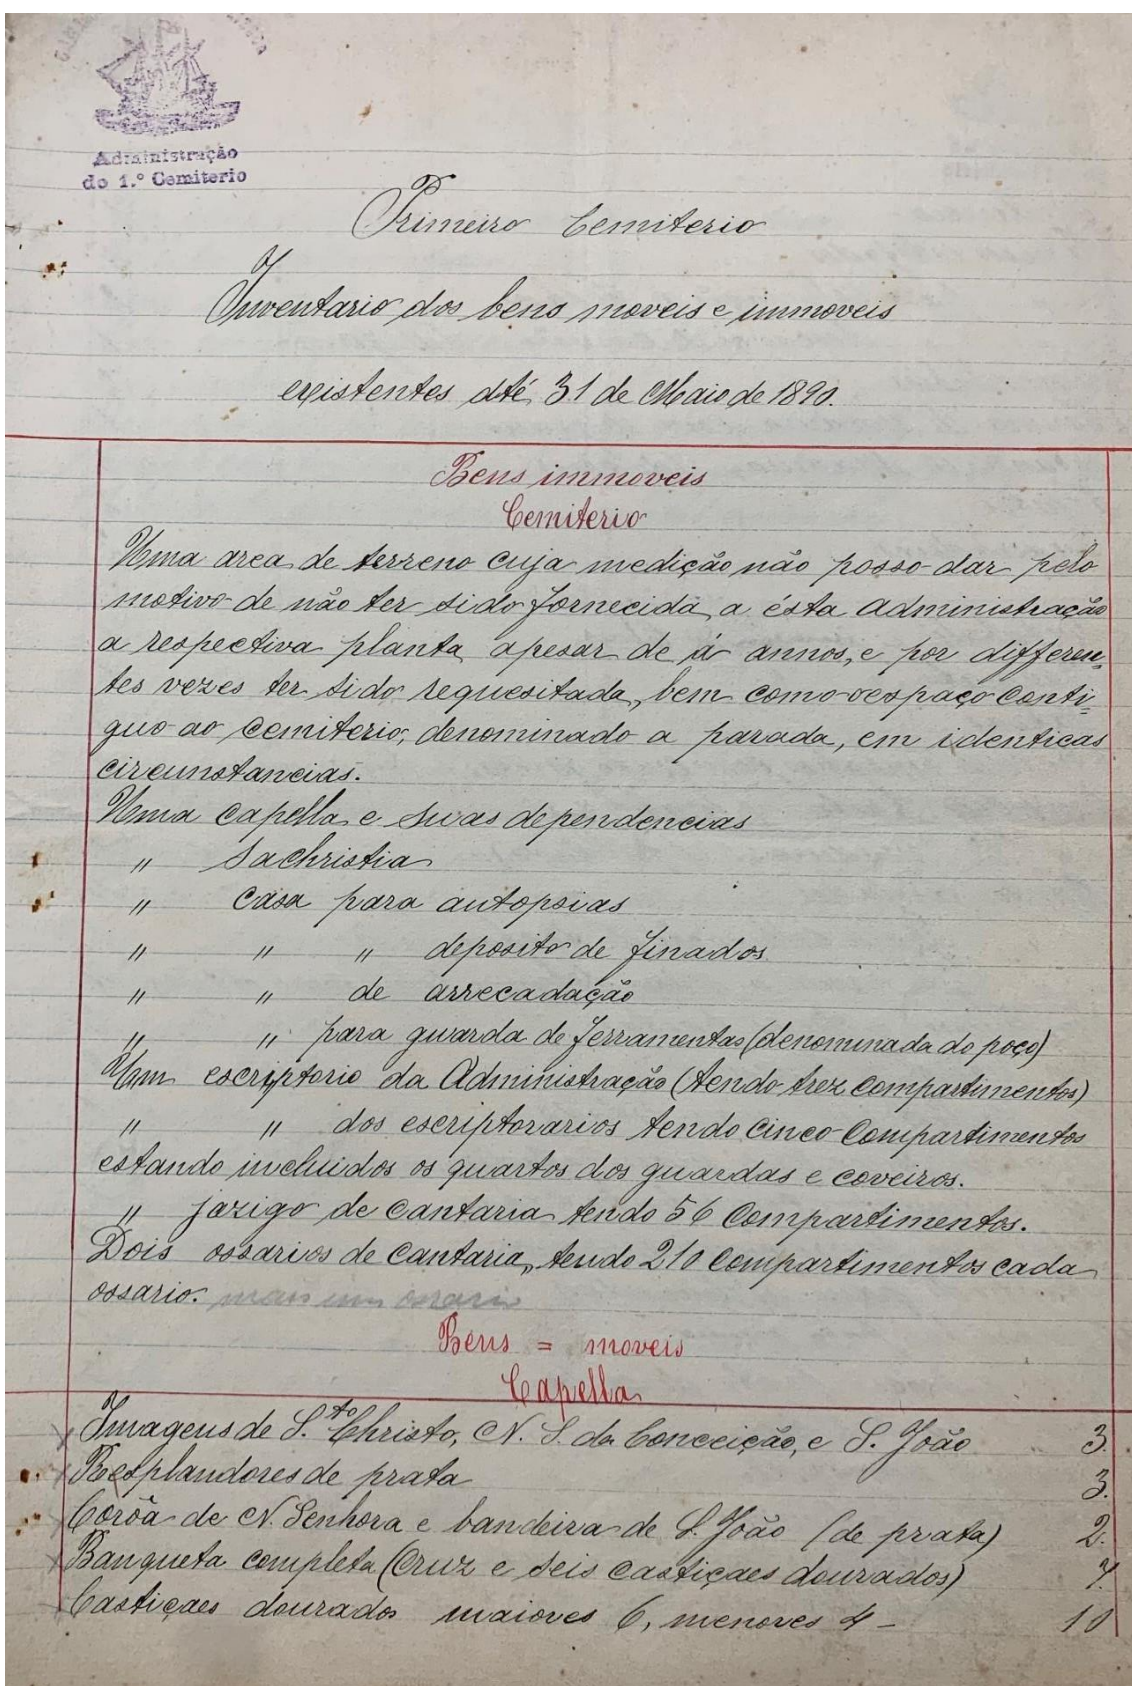 Administração
do 1.º Cemiterio
Primeiro Cemiterio
Inventario dos bens moveis e immoveis
existentes até 31 de Maio de 1890.
Bens immoveis
Cemiterio
Uma area de terreno cuja medição não posso dar pelo
motivo de não ter sido fornecida a ésta administração
a respectiva planta apesar de á annos, e por differen-
tes vezes ter sido requesitada, bem como o espaço conti-
guo ao cemiterio, denominado a parada, em identicas
circunstancias.
Uma capella e suas dependencias
" Sachristia
" Casa para autopsias
" " " deposito de finados
" " de arrecadação
" " para guarda de ferramentas (denominada do poço)
Um escriptorio da Administração (tendo trez compartimentos)
" " dos escriptorarios tendo cinco compartimentos
estando incluidos os quartos dos guardas e coveiros.
" jazigo de cantaria tendo 56 compartimentos.
Dois ossarios de cantaria, tendo 210 compartimentos cada
ossario. mais um ossario
Bens = moveis
Capella
Imagens de S.to Christo, N. S. da Conceição, e S. João 3.
Resplandores de prata 3.
Corôa de N. Senhora e bandeira de S. João (de prata) 2.
Banqueta completa (Cruz e seis castiçaes dourados) 7.
Castiçaes dourados maiores 6, menores 4 - 10